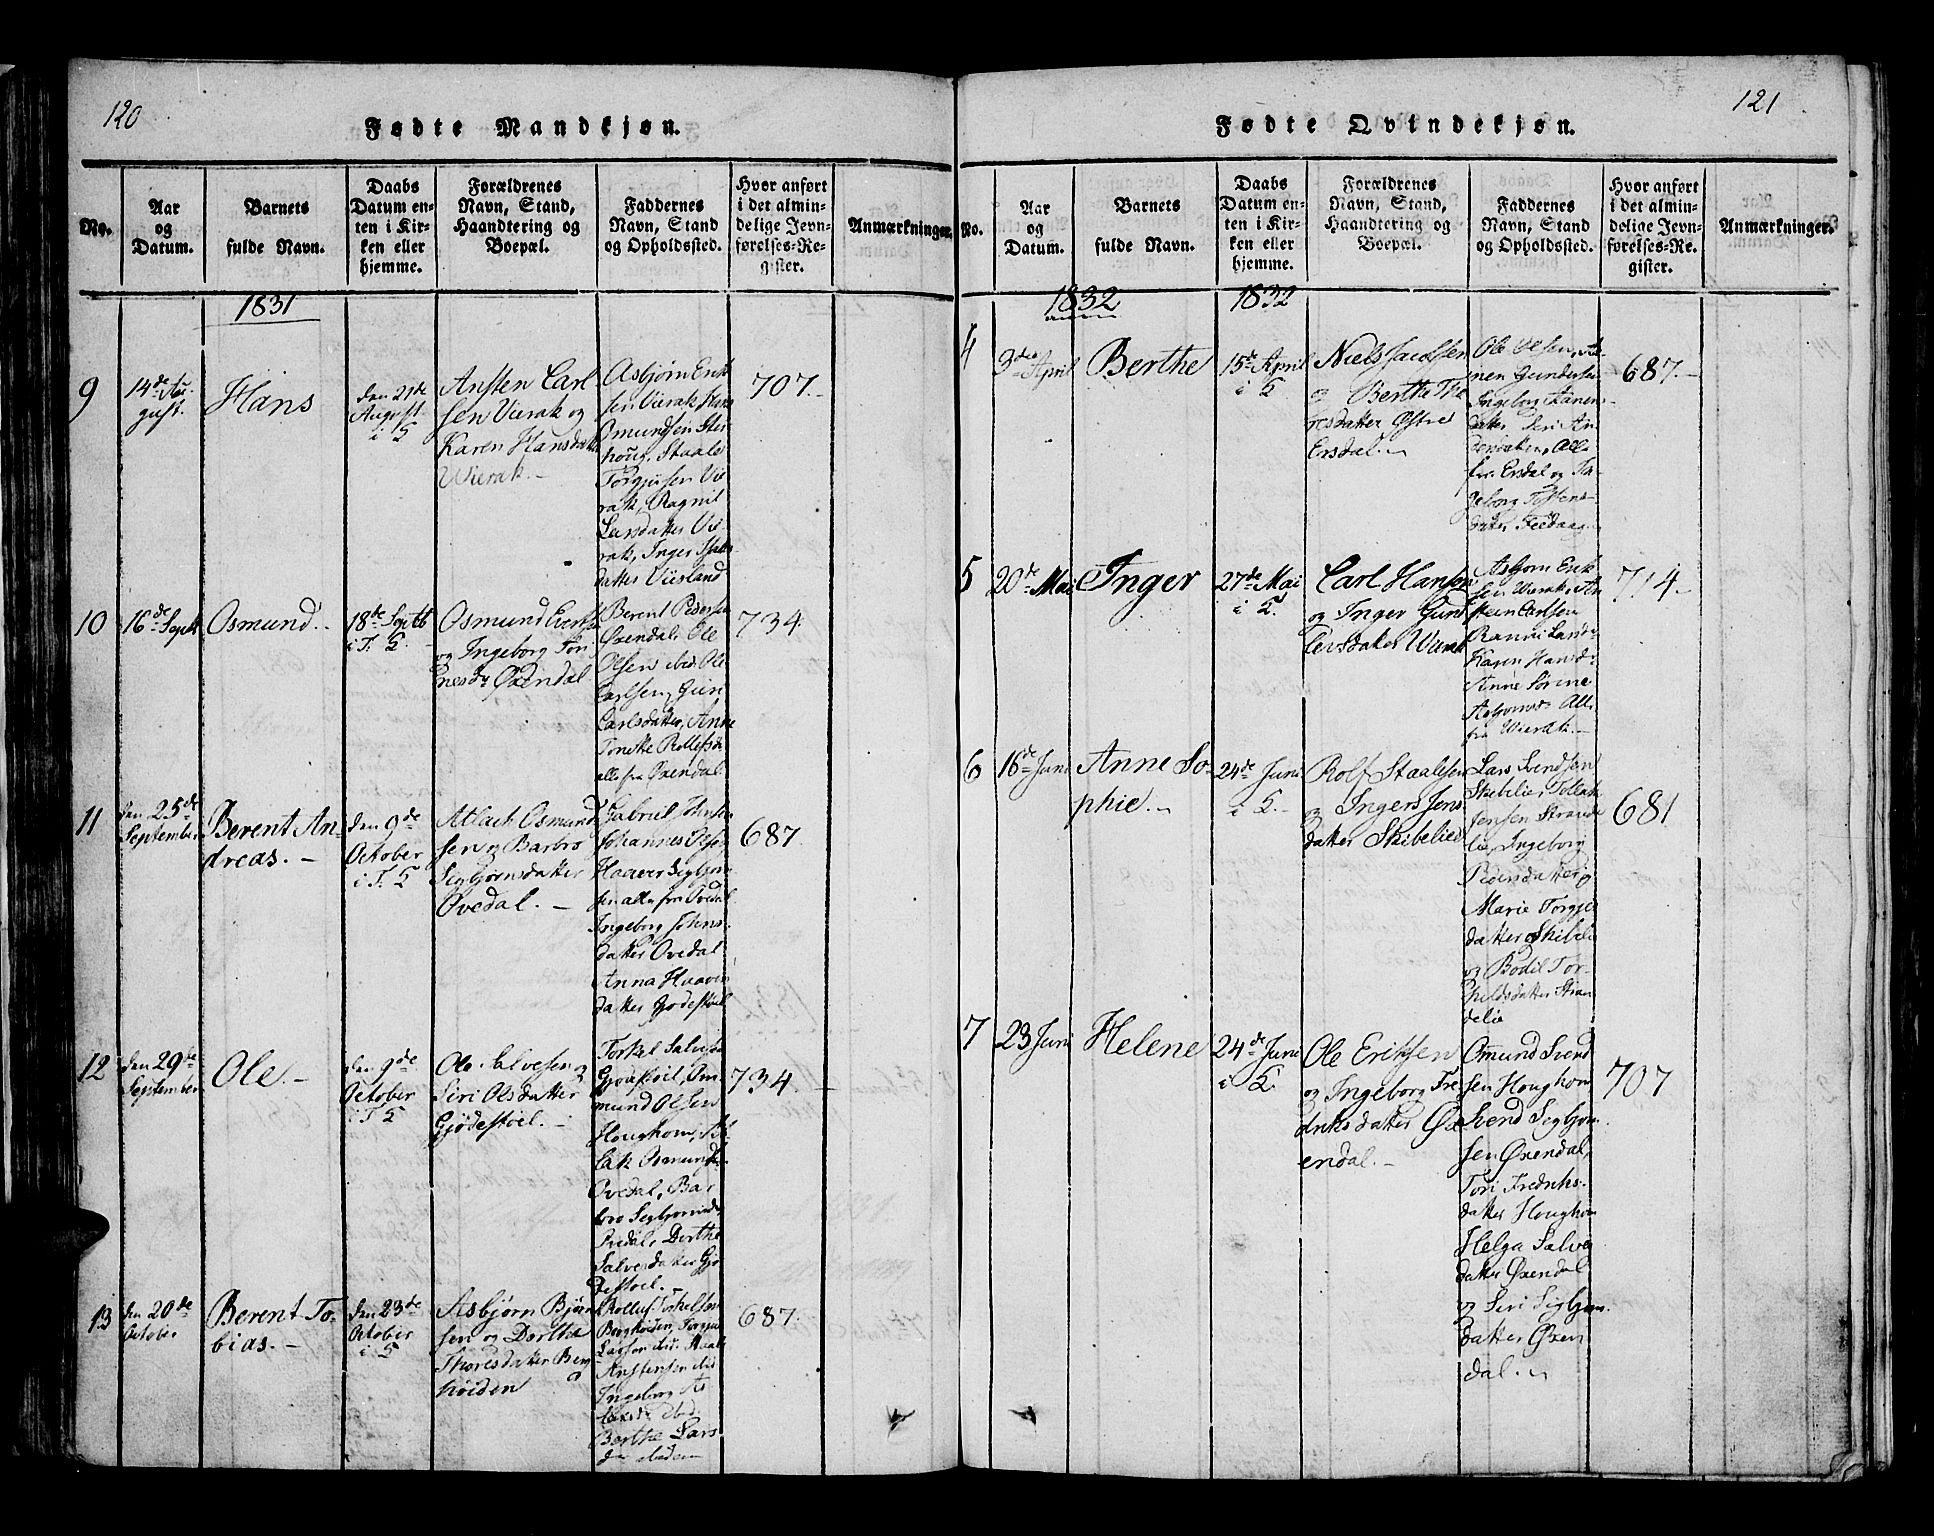 120
Fødte Mandkjøn.
No.
Aar
og
Datum.
Barnets
fulde Navn.
Daabs
Datum en-
ten i Kir-
ken eller
hjemme.
Forældrenes
Navn, Stand,
Haandtering og
Boepæl.
Faddernes
Navn, Stand
og Opholdssted.
Hvor anført
i det almin-
delige Jevn-
førelses-Re-
gister.
Anmærkninger.
1831
9
14de Au-
gust.
Hans
den 21de
August.
i
Ansten Carl
sen Vierak og
Karen Hansdatter
Wierak.
Asbjørn Erik
sen Vierak, Hans
Omundsen Ster
houg, Staale
Torgjusen Vie
rak, Ragnil
Larsdatter Vie
rak, Inger
datter Viisland
707.
10
16de Septb
Osmund.
18de Septb
i T.
Osmund Evertsen
og Ingeborg Tøn
nesdr Øxendal
Berent Pedersen
Oxendal, Ole
Olsen ibid. Ole
Carlsen, Guri
Carlsdatter, Anne
Tonette Rollefsdr
alle fra Oxendal
734.
11
den 25de
September
Berent An
dreas.
den 9de
October
i T.
Atlach Osmund
sen og Barbro
Segbjørnsdatter
Ovedal.
Gabriel Johnsen
Johannes Olsen
Haaver Segbjørn
sen alle fra Ovedal
Ingeborg Johns-
datter Ovedal
Anna Haaver
datter Gjødestøel
687.
12
den 29de
September
Ole.
den 9de
October
i T.
Ole Salvesen og
Siri Olsdatter
Gjødestøel.
Torkel Salvesen
Gjødestøel, Om
mund Olsen
Houghom, At
lak Osmunds
Ovedal, Bar
bro Segbjørnsdr
Ovedal, Dorthe
Salvesdatter Gjø
destøel.
734.
13
den 20de
October
Berent To-
bias.
den 23de
October
i
Asbjørn Bjørn
sen og Dorthe
Thoresdatter Berg
høiden
Rollef Torkelsen
Berghøiden, Torger
Larsen ibid. Staale
Anstensen ibid
Ingeborg As
laksdr ibid.
Berthe Lars
dr ibidem
687.
121
Fødte Qvindekjøn.
No.
Aar
og
Datum.
Barnets
fulde Navn.
Daabs
Datum en-
ten i Kir-
ken eller
hjemme.
Forældrenes
Navn, Stand,
Haandtering og
Boepæl.
Faddernes
Navn, Stand
og Opholdssted.
Hvor anført
i det almin-
delige Jevn-
førelses-Re-
gister.
Anmærkninger.
1832
1832
4
3die April
Berthe
15de April
i
Niels Jacobsen
og Berthe Tho
resdatter Østre
Ersdal.
Ole Olsen, An-
nen Gundersen
Ingeborg Aanen
datter Seri An
dersdatter, Alle
fra Ersdal og In
geborg Tostens-
datter Feedaag.
687.
5
20de Mai
Inger
27de Mai
i
Carl Hansen
og Inger Gund
lersdatter Wierak
Asbjørn Erik
sen Wierak, An
steen Carlsen
Karen Hansdr
Anne Sørine
Asbjørnsdr Alle
fra Wierak.
714.
6
16de Juni
Anne So-
phie.
24de Juni
i
Rolf Staalesen
og Inger Jens
datter Skibelied
Lars Svendsen
Skibelie, Tollak
Jensen Strande
lie, Ingeborg
Pedersdatter og
Marie Torgje
datter Skibelie
og Bodil Tor-
kildsdatter Stran
delie
681
7
23 Juni
Helene
24de Juni
i
Ole Eriksen
og Ingeborg Fre
driksdatter Øx
endal.
Omund Svend
sen Houghom
Svend Segbjørn
sen Øxendal,
Tori Fredriks-
datter Houghom
Helga Salve
datter Øxendal
og Siri Segbjørn
datter Øxen
dal.
707